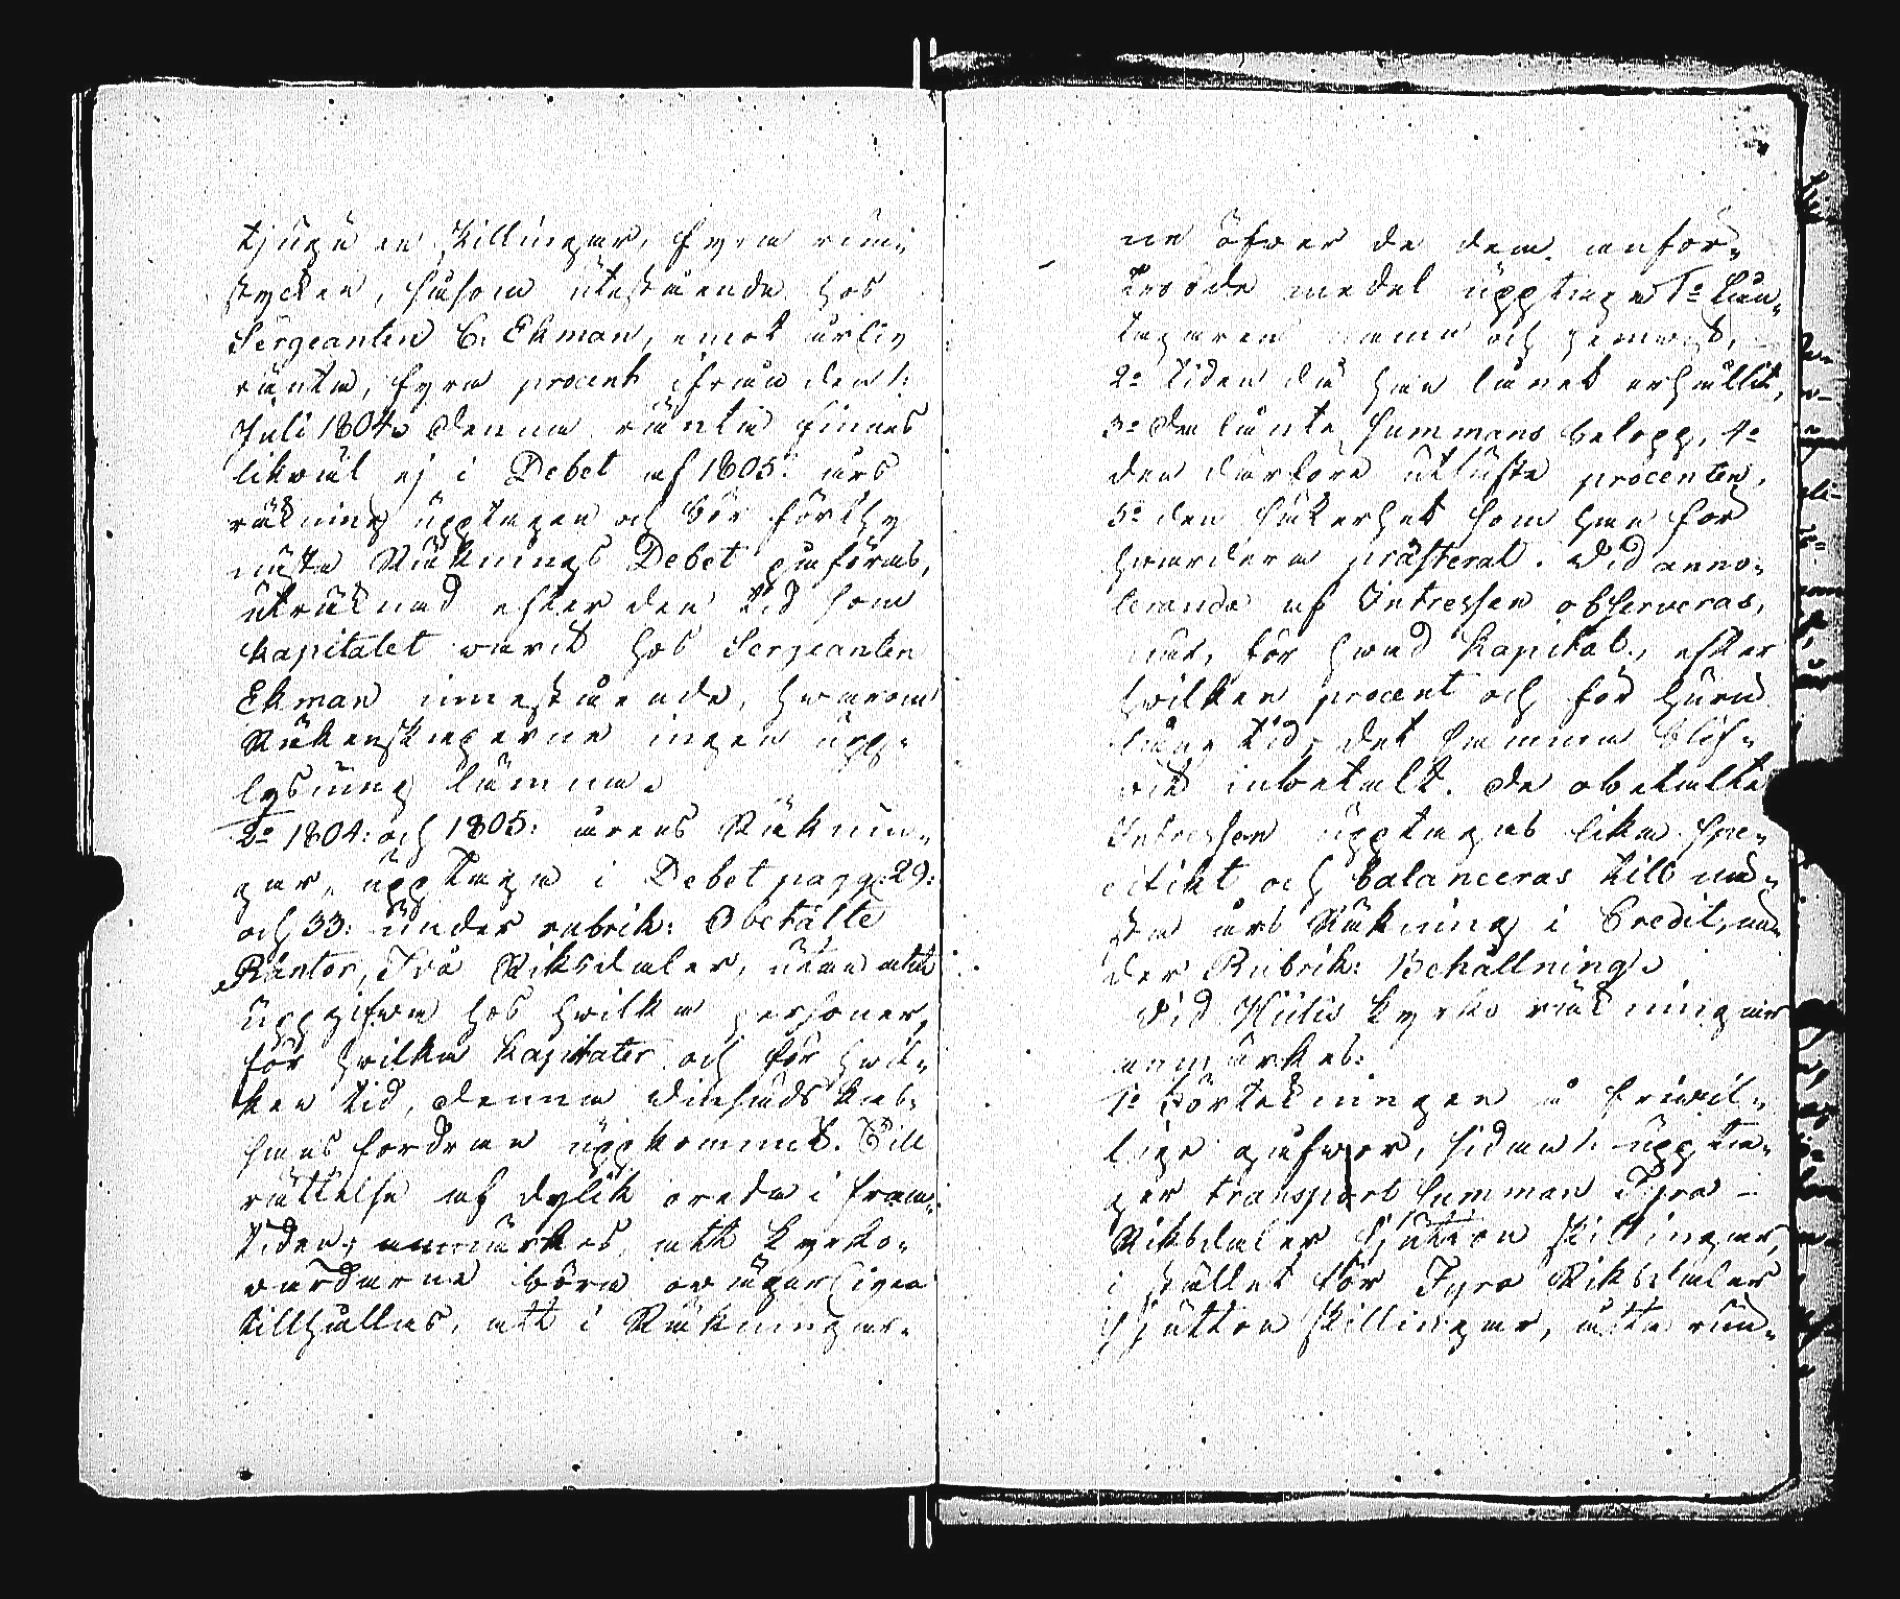 tjugu en skillingar, fyra run-
stycken, såsom utestående hos
Sergeanten C. Ekman, emot årlig
ränta, fyra procent ifrån den 1:
Juli 1804. Denna ränta finnes
likväl ej i Debet af 1805: års
räkning upptagen och bör förthy
nästa Räknings Debet påföras,
uträknad efter den tid som
Kapitalet varit hos Sergeanten
Ekman innestående, hvarom
Räkenskaperne ingen upp-
lysning lämna.
2º 1804: och 1805: årens Räknin-
gar, upptaga i Debet pagg: 29:
och 33: under rubrik: Obetalte
Räntor, Två Riksdaler, utan att
uppgifva hos hvilka personer,
för hvilka Kapitaler och för hvil-
ken tid, denna
fordran uppkommit. Till
rättelse af dylik oreda i fram-
tiden; anmärkes, att Kyrko-
värdarne böra ovägerligen
tillhållas, att i Räkningar-
ne öfver de dem anför-
trodde medel upptaga 1º Lån-
tagarens namn och hemvist,
2º tiden då han lånet erhållit,
3º den lånte Summans belopp, 4º
den därföre utfäste procenten,
5º den säkerhet som han för
hvardera præsterat. Vid anno-
terande af Intressen observeras,
när, för hvad Kapital, efter
hvilken procent och för huru
lång tid, det samma blif-
vit inbetalt. De obetalte
Intressen upptagas lika spe-
cifikt och balanceras till nä-
sta års Räkning i Credit, un-
der Rubrik: Behållning.
Vid Kyrko räkningar
anmärkes:
1º Förtekningen å frivil-
lige gåfvor, sidan 1: uppta-
ger transport Summan Fyra -
Riksdaler sjutton skillingar,
i stället för Fyra Riksdaler
sjutton skillingar, åtta run-